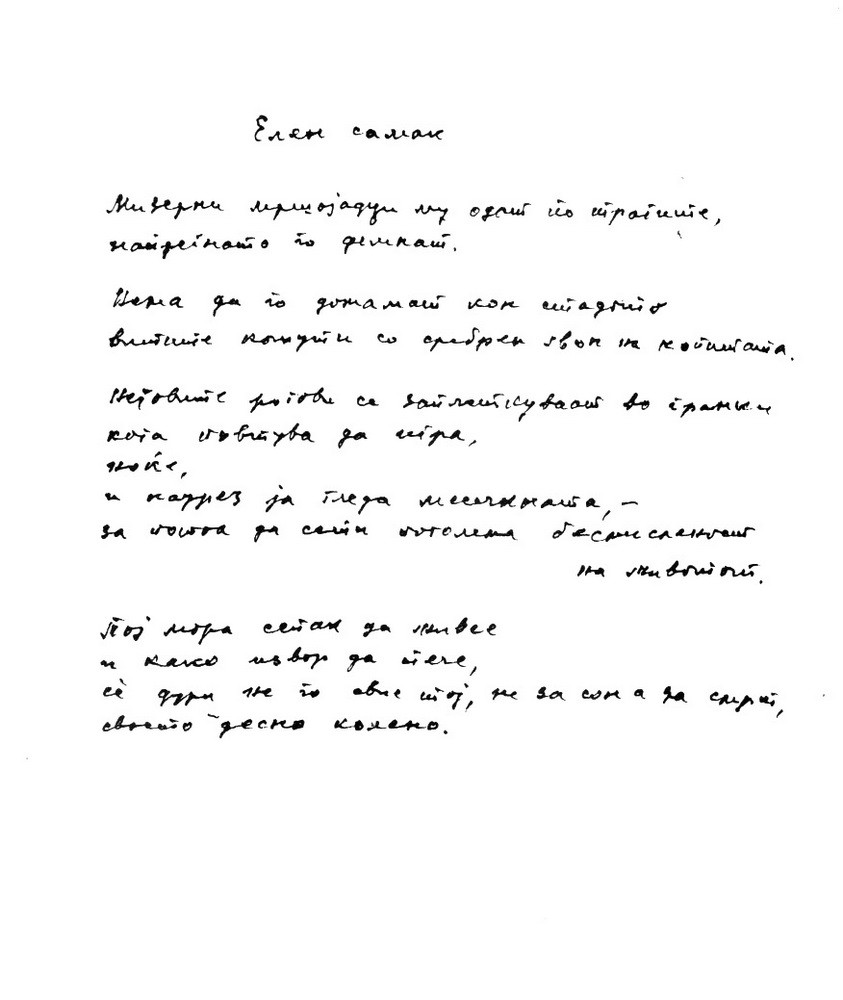 Елен самак
Мизерни мршојадци му одат по трагите,
најреѓното го демнат.
Нема да го домамат кон стадото
витите кошути со сребрен ѕвон на копитата.
Неговите рогови се заплеткуваат во гранки
кога појтува да игра,
ноќе,
и напрез ја гледа месечината, –
за потоа да сети поголема бесмисленост
на животот.
Тој мора сепак да живее
и како извор да тече,
сè дури не го свие тој, не за сон а за смрт,
своето десно колено.